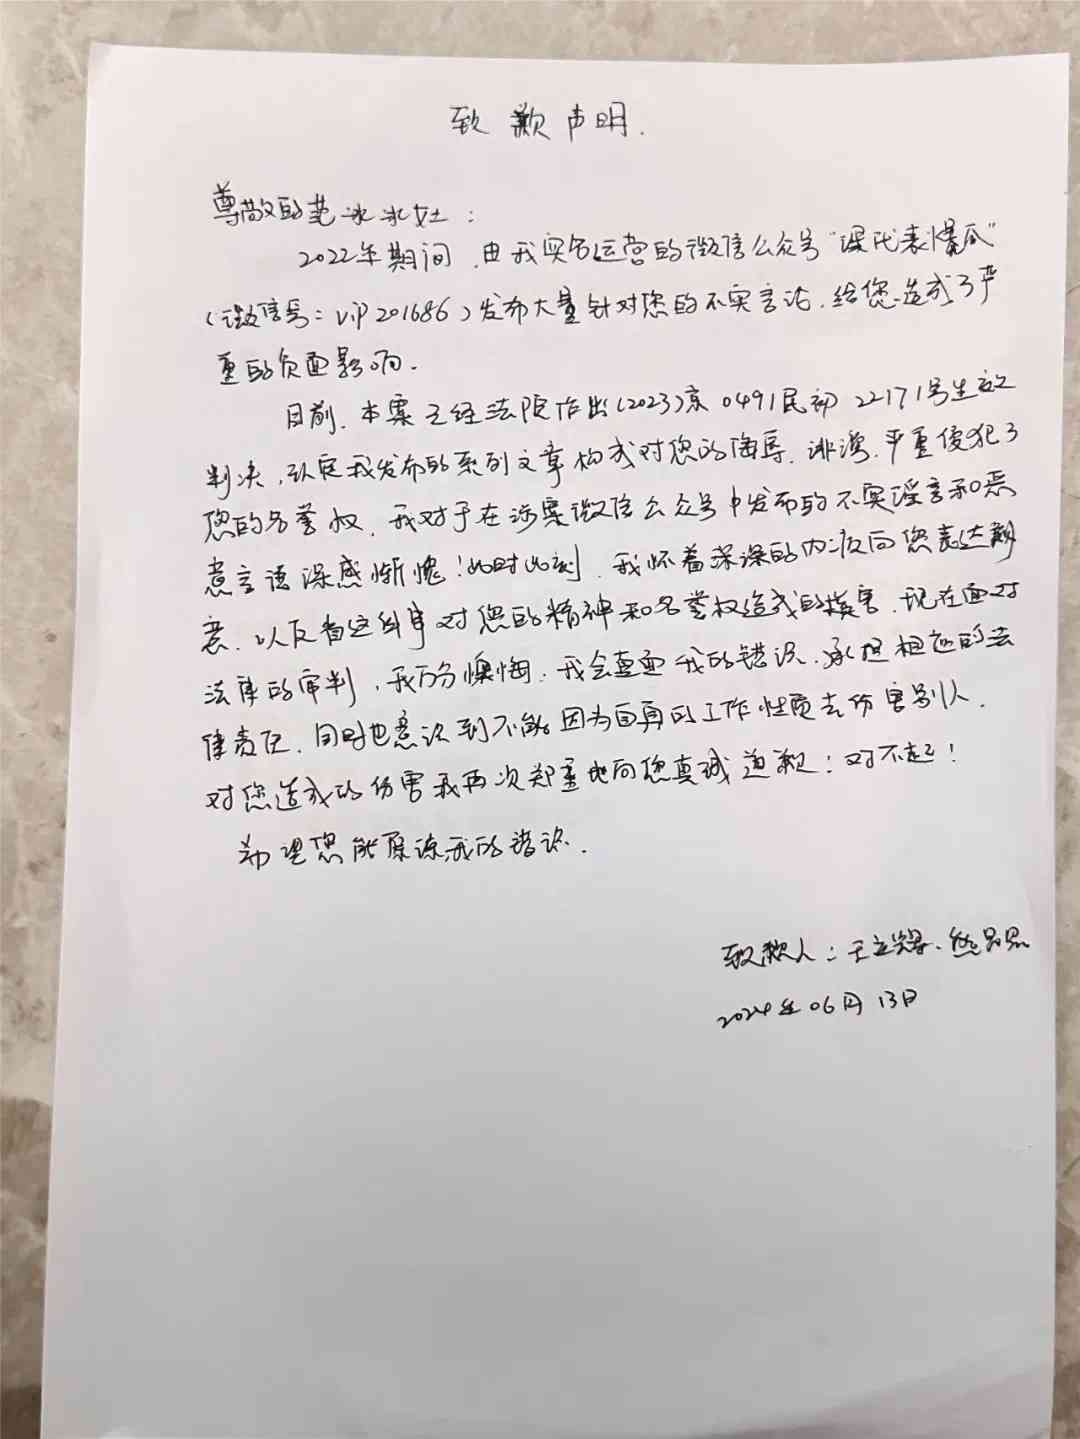 致歉声明.
尊敬的范冰冰女士:
2022年期间,由我实名运营的微信公众号“课代表爆瓜”
(微信号:vip201686)发布大量针对您的不实言论,给您造成了严
重的负面影响.
目前,本案已经法院作出(2023)京0491民初22171号生效
判决,认定我发布的系列文章构成对您的侮辱、诽谤,严重侵犯了
您的名誉权,我对于在涉案微信公众号中发布的不实谣言和恶
意言语深感惭愧!此时此刻,我怀着深深的内疚向您表达歉
意,以及着这件事对您的精神和名誉权造成的损害,现在面对
法律的审判,我万分懊悔,我会直面我的错误,承担相应的法
律责任,同时也意识到不能因为自身的工作性质去伤害别人.
对您造成的伤害我再次郑重地向您真诚道歉:对不起!
希望您能原谅我的错误.
致歉人:王立辉、熊
2024年06月13日